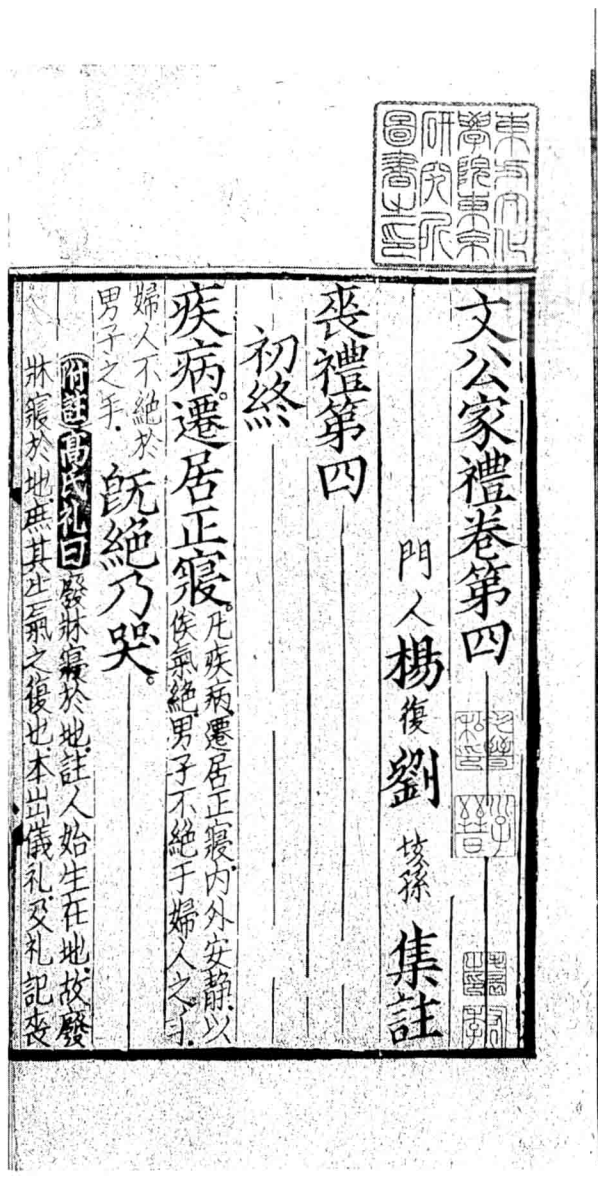 東方文化
學院東京
研究所
圖書之印
文公家禮卷第四
門人楊復劉垓孫集註
喪禮第四
初終
疾病遷居正寢。凡疾病遷居正寢内外安靜以
俟氣絶男子不絶于婦人之手
婦人不絶於
男子之手
既絶乃哭。
附註高氏礼曰廢牀寢於地註人始生在地故廢
牀寢於地庶其生氣之復也本出儀礼及礼記喪